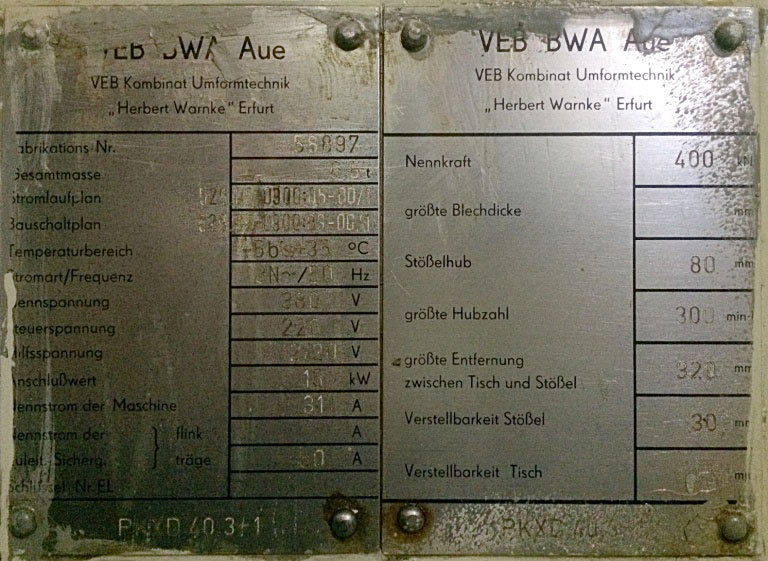 VEB BWA Aue
VEB Kombinat Umformtechnik
„Herbert Warnke" Erfurt
abrikations Nr.
Gesamtmasse t
Stromlaufplan
Bauschaltplan
Temperaturbereich °C
Stromart/Frequenz Hz
Nennspannung 380 V
Steuerspannung 220 V
ilfsspannung V
Anschlußwert kW
Nennstrom der Maschine 31 A
Nennstrom der } flink A
uleit. Sicherg. träge A
chlüssel Nr. EL
VEB BWA Aue
VEB Kombinat Umformtechnik
„Herbert Warnke" Erfurt
Nennkraft 400 kN
größte Blechdicke mm
Stößelhub 80 mm
größte Hubzahl 300 min-
größte Entfernung
zwischen Tisch und Stößel 320 mm
Verstellbarkeit Stößel 30 mm
Verstellbarkeit Tisch mm